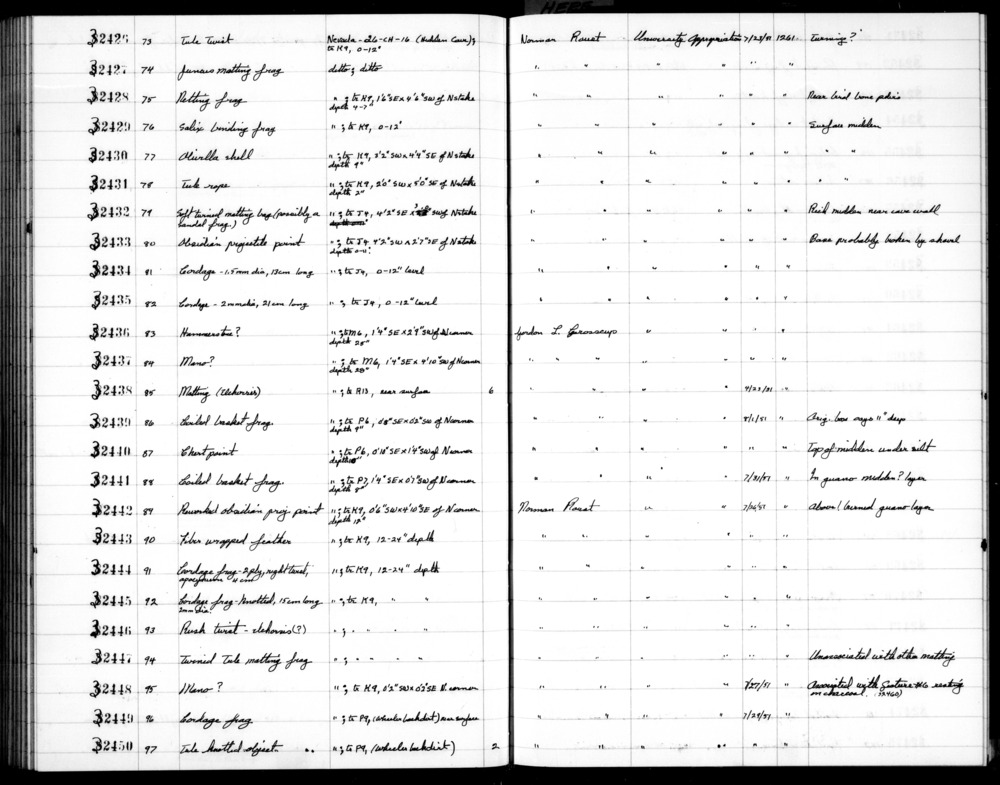 32426 73 Tule Twist Nevada-26-CH-16 (Hidden Cave); Norman Roust University Appropriation 7/23/51 1261. Turning?
tr K9, 0-12"
32427 74 Juncus matting frag ditto; ditto " " " " " "
32428 75 Netting frag "; tr K9, 1'6"SE x 4'6"SW of N stake " " " " " " Near bird bone
depth 4-7"
32429 76 Salix binding frag "; tr K9, 0-12" " " " " " " Surface midden
32430 77 Olivella shell "; tr K9, 3'2"SW x 4'4"SE of N stake " " " " " " " "
depth 9"
32431 78 Tule rope "; tr K9, 2'0"SW x 5'0"SE of N stake " " " " " " " "
depth 2"
32432 79 Soft twined matting bag (possibly a "; tr J4, 4'2"SE x SW of N stake " " " " " " Reed midden near cave wall
sandal frag.)
32433 80 Obsidian projectile point "; tr J4 4'2"SW x 2'7"SE of N stake " " " " " " Base probably broken by shovel
depth 0-11"
32434 81 Cordage - 1.5mm dia, 13cm long "; tr J4, 0-12" level " " " " " "
32435 82 Cordage - 2mm dia, 21cm long "; tr J4, 0-12" level " " " " " "
32436 83 Hammerstone? "; tr M6, 1'4"SE x 2'9"SW of N corner Gordon L. Grosscup " " " "
depth 28"
32437 84 Mano? "; tr M6, 1'4"SE x 4'10"SW of N corner " " " " " " "
depth 28"
32438 85 Matting (eleborris) "; tr R13, near surface 6 " " " " 7/23/51 "
32439 86 Coiled basket frag. "; tr P6, 0'8"SE x 0'2"SW of N corner " " " " 8/1/51 " Orig. box says 11" deep
depth 9"
32440 87 Chert point "; tr P6, 0'10"SE x 1'4"SW of N corner " " " " " " Top of midden under silt
32441 88 Coiled basket frag. "; tr P7, 1'4"SE x 0'7"SW of N corner " " " " 7/31/51 " In guano midden? layer
depth 8"
32442 89 Reworked obsidian proj. point "; tr K9, 0'6"SW x 4'10"SE of N corner Norman Roust " " 7/26/51 " Above burned guano layer
depth 12"
32443 90 Fiber wrapped feather "; tr K9, 12-24" depth " " " " " "
32444 91 Cordage frag - 2ply, right twist, "; tr K9, 12-24" depth " " " " " "
apocynum 4cm
32445 92 Cordage frag - knotted, 15cm long "; tr K9, " " " " " " " "
2mm dia.
32446 93 Rush twist - eleborris(?) "; " " " " " " " " "
32447 94 Twined Tule matting frag "; " " " " " " " " " Unassociated with other matting
32448 95 Mano? "; tr K9, 0'2"SW x 0'3"SE N. corner " " " " 7/27/51 " Associated with Feature #6 resting
on charcoal. (32460)
32449 96 Cordage frag "; tr P9, (Wheeler backdirt) near surface " " " " 7/29/51 "
32450 97 Tule knotted object "; tr P9, (Wheeler backdirt) 2 " " " " " "